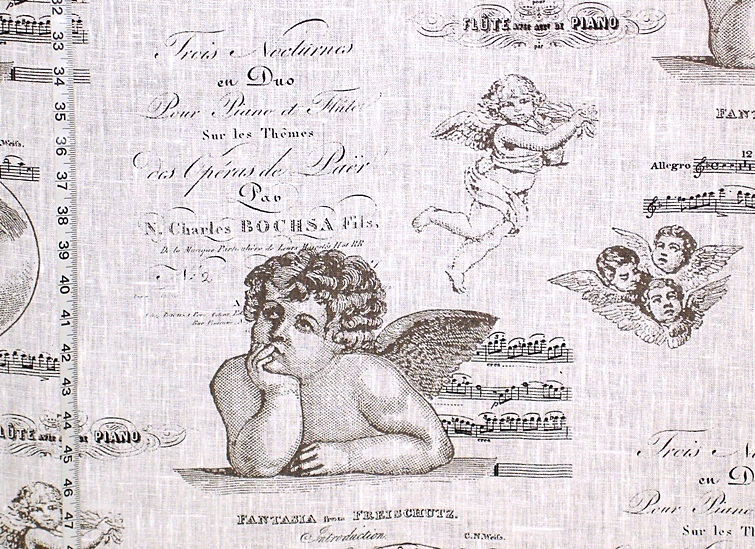 32
33
34
35
36
37
38
39
40
41
42
43
44
45
46
47
Weifs.
FLÛTE AVEC ACCT DE PIANO
par
Trois Nocturnes
en Duo
Pour Piano et Flûte
Sur les Thêmes
des Opéras de Paër
Par
N. Charles BOCHSA Fils,
De la Musique Particulière de Leurs Majestés II et RR
No. 2
FANT
12
Allegro
cres
p
cres
LÛTE DE PIANO
FANTASIA from FREISCHUTZ.
Introduction.
C.N.Weifs.
Trois No
en D
Pour Piano
Sur les T